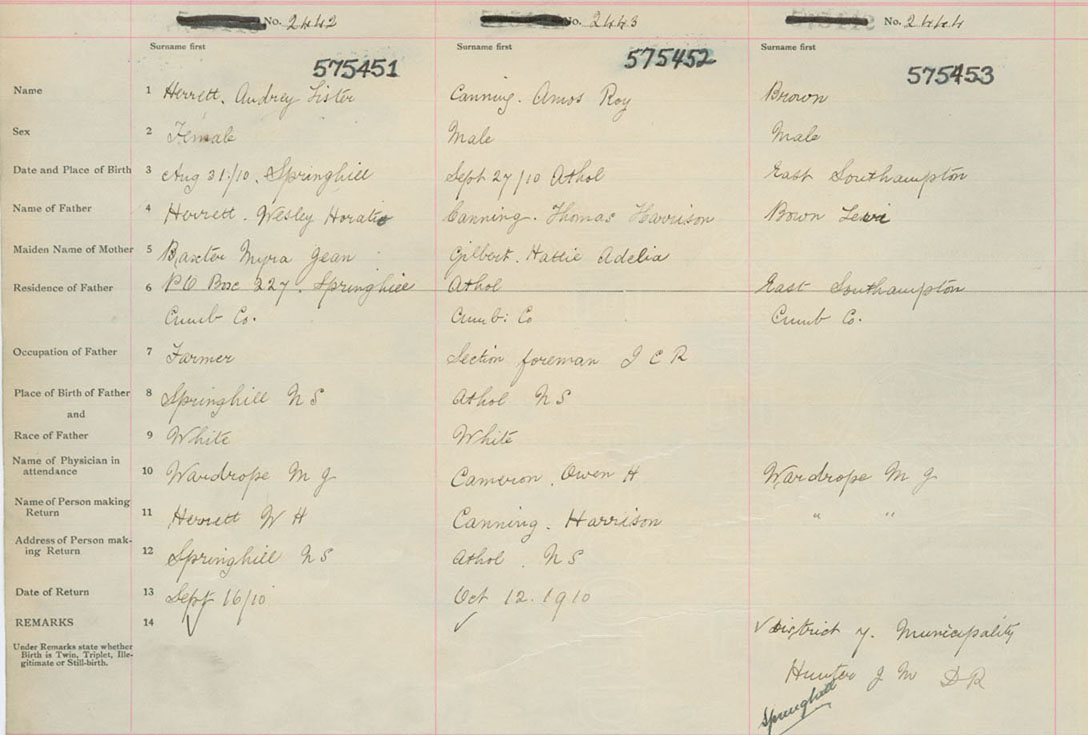 No. 2442 No. 2443 No. 2444
Surname first Surname first Surname first
575451 575452 575453
Name 1 Herrett. Audrey Lister Canning. Amos Roy Brown
Sex 2 Female Male Male
Date and Place of Birth 3 Aug 31/10. Springhill Sept 27/10 Athol East Southampton
Name of Father 4 Herrett. Wesley Horatio Canning. Thomas Harrison Bown Levi
Maiden Name of Mother 5 Baxter Myra Jean Gilbert. Hattie Adelia
Residence of Father 6 P.O Box 227. Springhill Athol East Southampton
Cumb Co. Cumb: Co Cumb Co.
Occupation of Father 7 Farmer Section foreman I C R
Place of Birth of Father 8 Springhill N S Athol N S
and
Race of Father 9 White White
Name of Physician in
attendance 10 Wardrope M J Cameron. Owen H Wardrope M J
Name of Person making
Return 11 Herrett W H Canning. Harrison " "
Address of Person mak-
ing Return 12 Springhill N S Athol. N S
Date of Return 13 Sept 16/10 Oct 12. 1910
REMARKS 14 ✓ ✓ ✓ District 7. Municipality
Under Remarks state whether
Birth is Twin, Triplet, Ille-
gitimate or Still-birth.
Hunter J M D R
Springhill